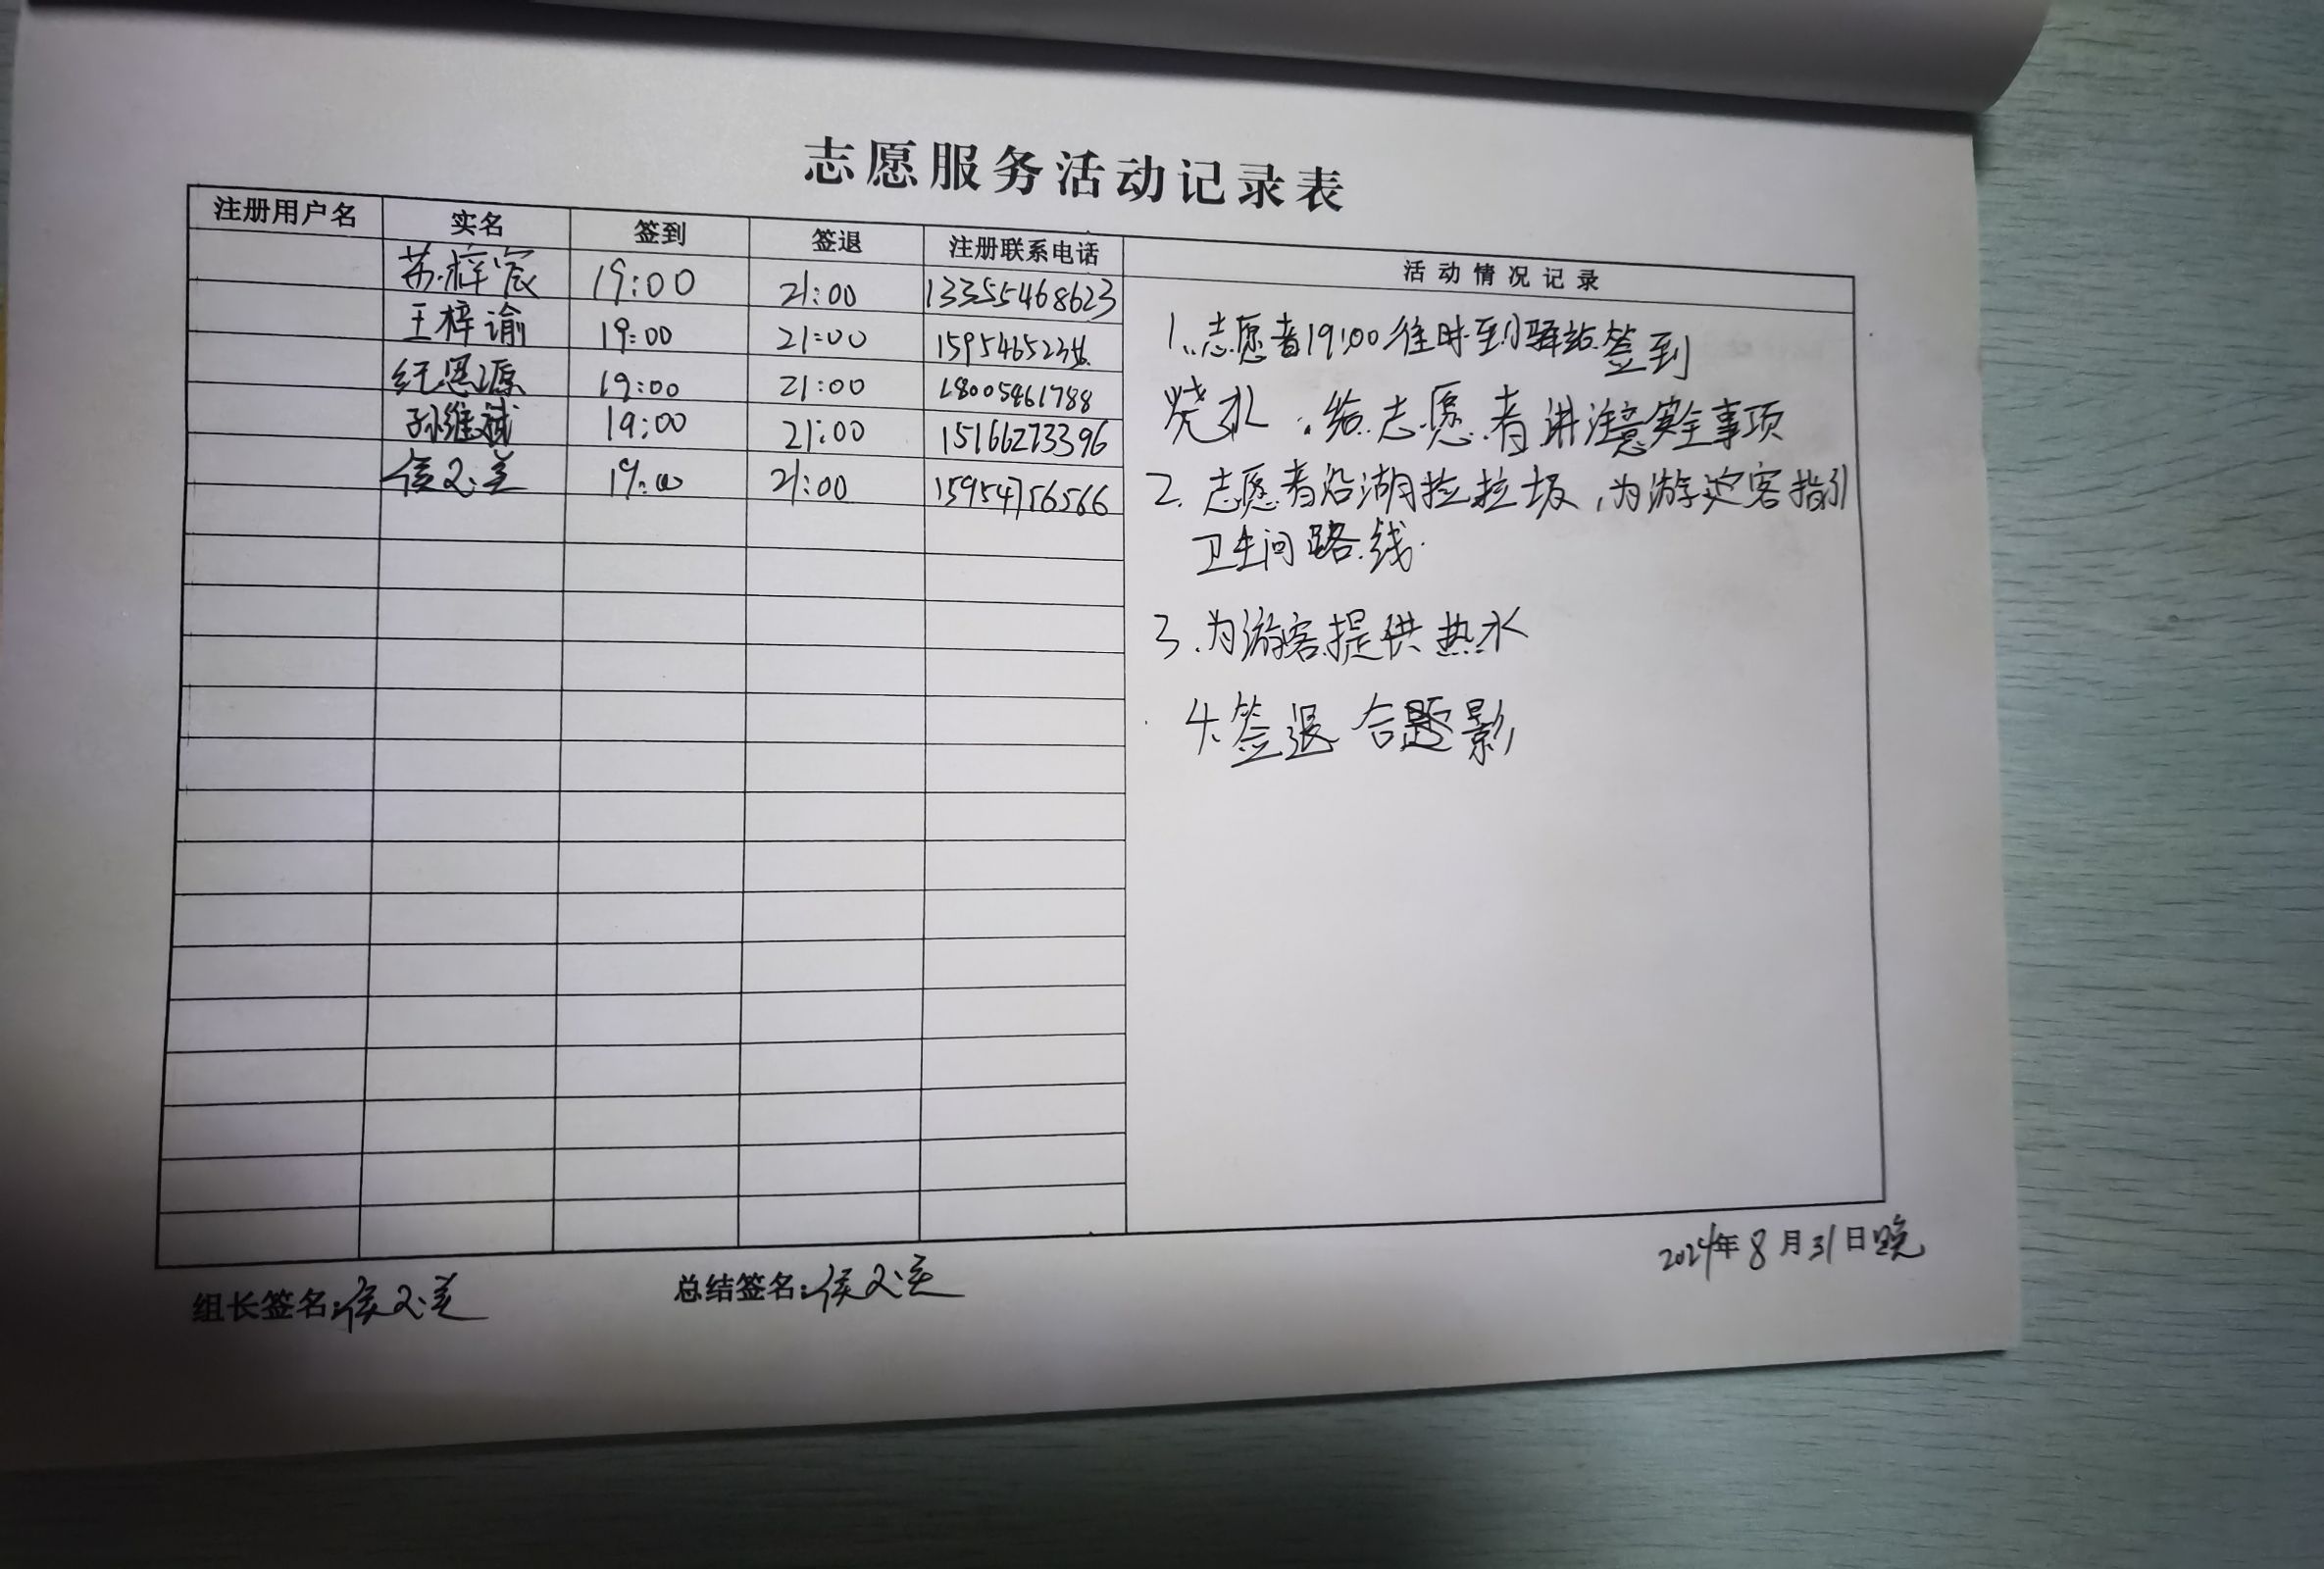 志愿服务活动记录表
注册用户名 实名 签到 签退 注册联系电话 活动情况记录
苏梓宸 19:00 21:00 13355468623
王梓谕 19:00 21:00 159546523
纪恩源 19:00 21:00 18005461788
孙维斌 19:00 21:00 15166273396
侯文 19:00 21:00 15954756566
1.志愿者19:00准时到驿站签到
烧水,给志愿者讲注意安全事项
2.志愿者沿湖捡垃圾,为游客指引
卫生间路线.
3.为游客提供热水
4.签退 合影
2024年8月31日晚
组长签名:侯文 总结签名:侯文